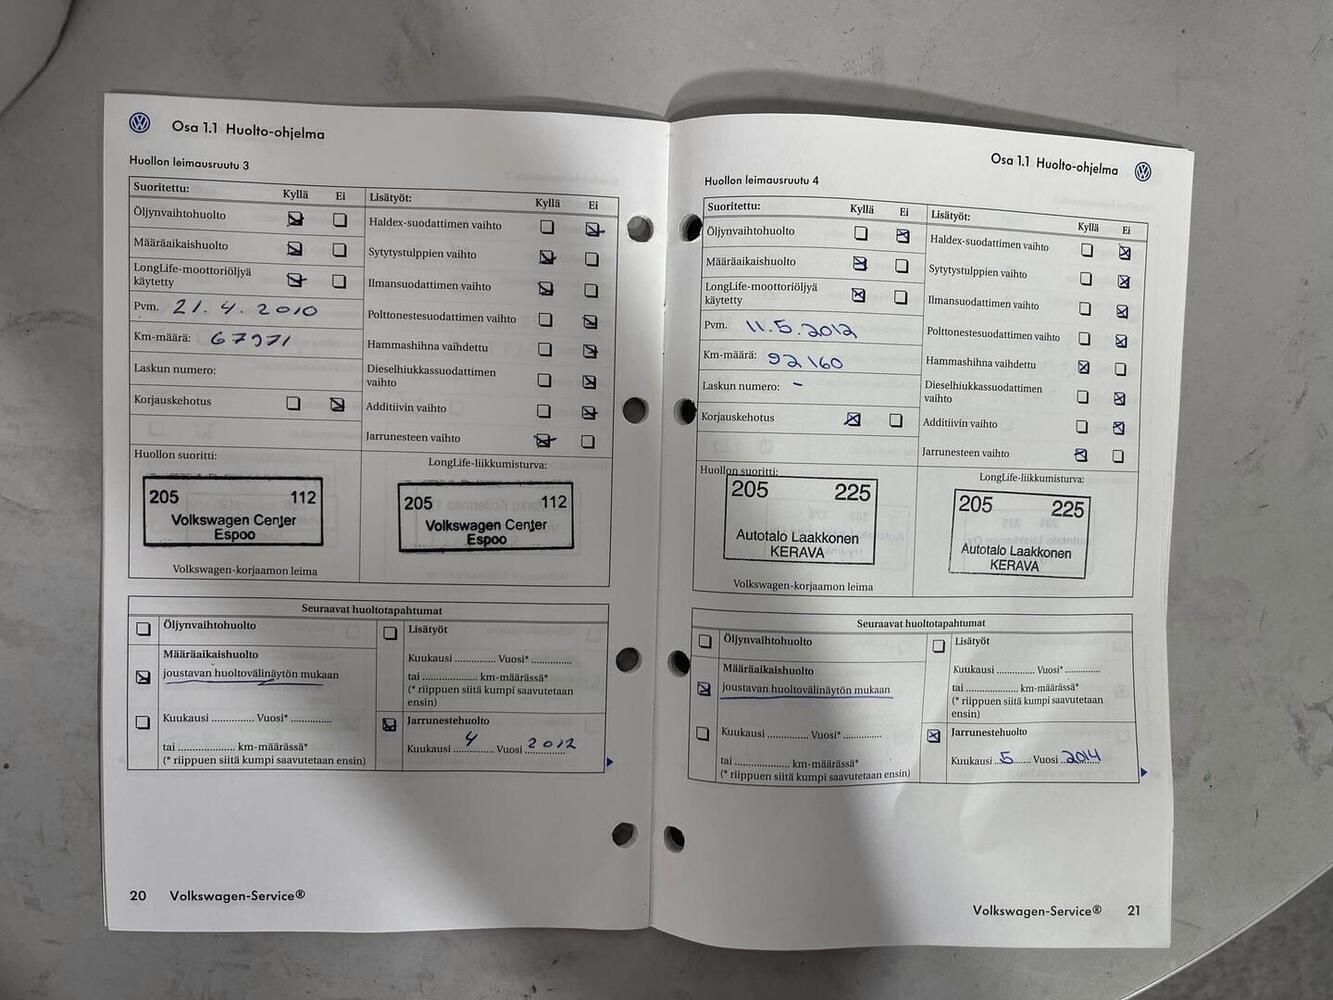 Osa 1.1 Huolto-ohjelma
Huollon leimausruutu 3
Suoritettu: Kyllä Ei
Öljynvaihtohuolto
Määräaikaishuolto
LongLife-moottoriöljyä
käytetty
Pvm. 21.4.2010
Km-määrä: 67971
Laskun numero:
Korjauskehotus
Lisätyöt: Kyllä Ei
Haldex-suodattimen vaihto
Sytytystulppien vaihto
Ilmansuodattimen vaihto
Polttonestesuodattimen vaihto
Hammashihna vaihdettu
Dieselhiukkassuodattimen
vaihto
Additiivin vaihto
Jarrunesteen vaihto
Huollon suoritti:
205 112
Volkswagen Center
Espoo
Volkswagen-korjaamon leima
LongLife-liikkumisturva:
205 112
Volkswagen Center
Espoo
Seuraavat huoltotapahtumat
Öljynvaihtohuolto
Määräaikaishuolto
joustavan huoltovälinäytön mukaan
Kuukausi .............. Vuosi* ..............
tai .................... km-määrässä*
(* riippuen siitä kumpi saavutetaan ensin)
Lisätyöt
Kuukausi .............. Vuosi* ..............
tai .................... km-määrässä*
(* riippuen siitä kumpi saavutetaan
ensin)
Jarrunestehuolto
Kuukausi 4 Vuosi 2012
20 Volkswagen-Service®
Osa 1.1 Huolto-ohjelma
Huollon leimausruutu 4
Suoritettu: Kyllä Ei
Öljynvaihtohuolto
Määräaikaishuolto
LongLife-moottoriöljyä
käytetty
Pvm. 11.5.2012
Km-määrä: 92160
Laskun numero: -
Korjauskehotus
Lisätyöt: Kyllä Ei
Haldex-suodattimen vaihto
Sytytystulppien vaihto
Ilmansuodattimen vaihto
Polttonestesuodattimen vaihto
Hammashihna vaihdettu
Dieselhiukkassuodattimen
vaihto
Additiivin vaihto
Jarrunesteen vaihto
Huollon suoritti:
205 225
Autotalo Laakkonen
KERAVA
Volkswagen-korjaamon leima
LongLife-liikkumisturva:
205 225
Autotalo Laakkonen
KERAVA
Seuraavat huoltotapahtumat
Öljynvaihtohuolto
Määräaikaishuolto
joustavan huoltovälinäytön mukaan
Kuukausi .............. Vuosi* ..............
tai .................... km-määrässä*
(* riippuen siitä kumpi saavutetaan ensin)
Lisätyöt
Kuukausi .............. Vuosi* ..............
tai .................... km-määrässä*
(* riippuen siitä kumpi saavutetaan
ensin)
Jarrunestehuolto
Kuukausi 5 Vuosi 2014
Volkswagen-Service® 21